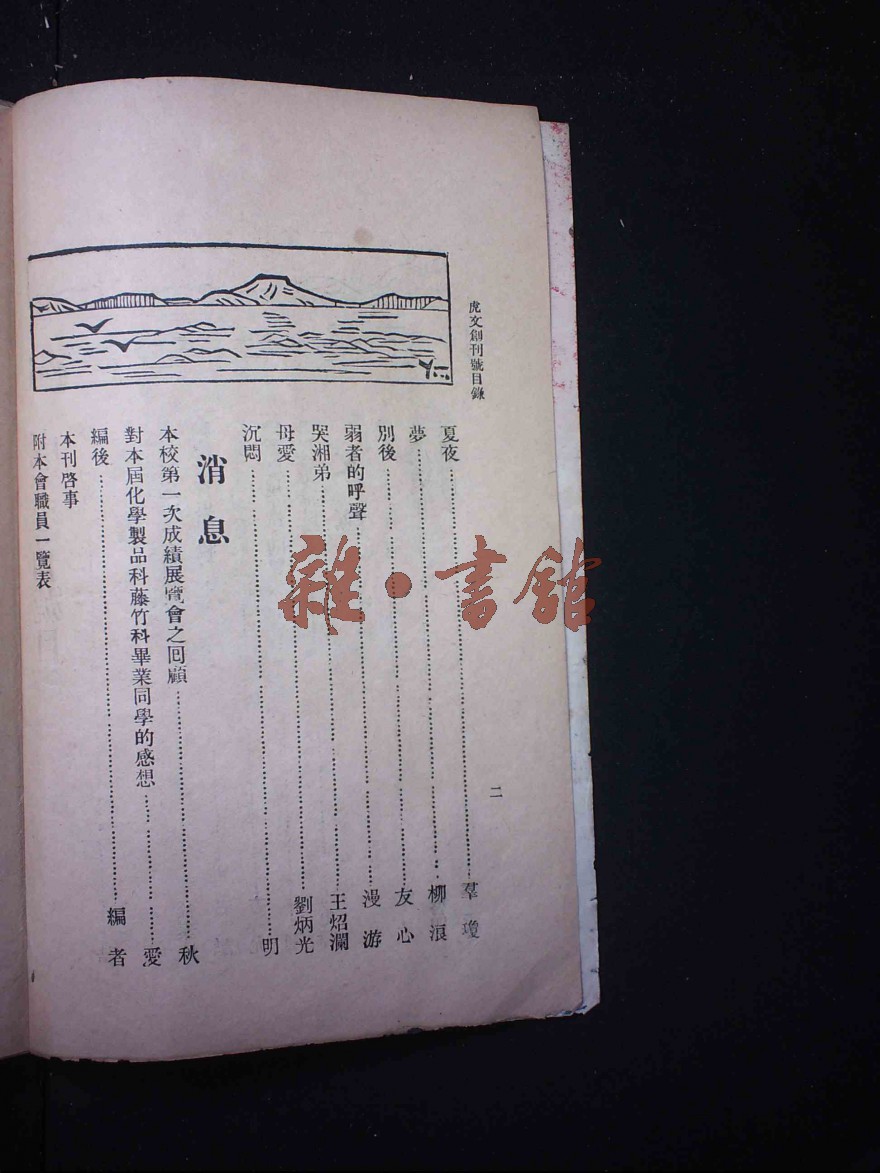 虎文創刊號目錄
二
夏夜……羣瓊
夢……柳浪
別後……友心
弱者的呼聲……漫游
哭湘弟……王炤瀾
母愛……劉炳光
沉悶……明
消息
本校第一次成績展覽會之回顧……秋
對本屆化學製品科藤竹科畢業同學的感想……愛
編後……編者
本刊啓事
附本會職員一覽表
雜·書館